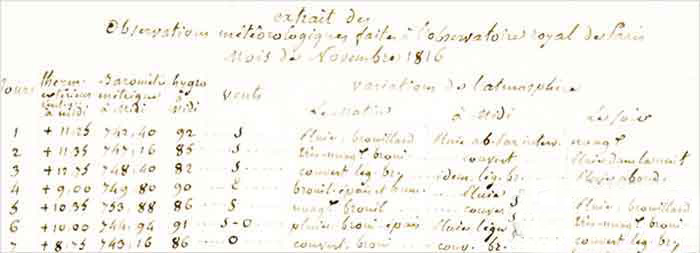 extrait des
Observations météorologiques faites à l'observatoire royal de Paris
Mois de Novembre 1816
Jours therm. extérieur à midi Baromètre métrique à Midi hygro à Midi vents variations de l'atmosphère
Le Matin à Midi Le soir
1 + 11.25 742,40 92 S Pluie. brouillard Pluie ab. nuag.
2 + 11.35 747,16 85 S très-nuag. brouil couvert Pluie dans la nuit
3 + 12.75 748,40 82 S couvert leg. br idem. lég. br. Pluie abond.
4 + 9,00 749,80 90 brouil. épais et Pluie
5 + 10.35 753,88 86 S nuag. brouil couver Pluie. brouillard
6 + 10.00 744,94 91 S-O pluie. brouil. épais Pluie lég. très-nuag. brouil
7 + 8.75 743,16 86 O couvert. brouil couv. br. couvert leg. br